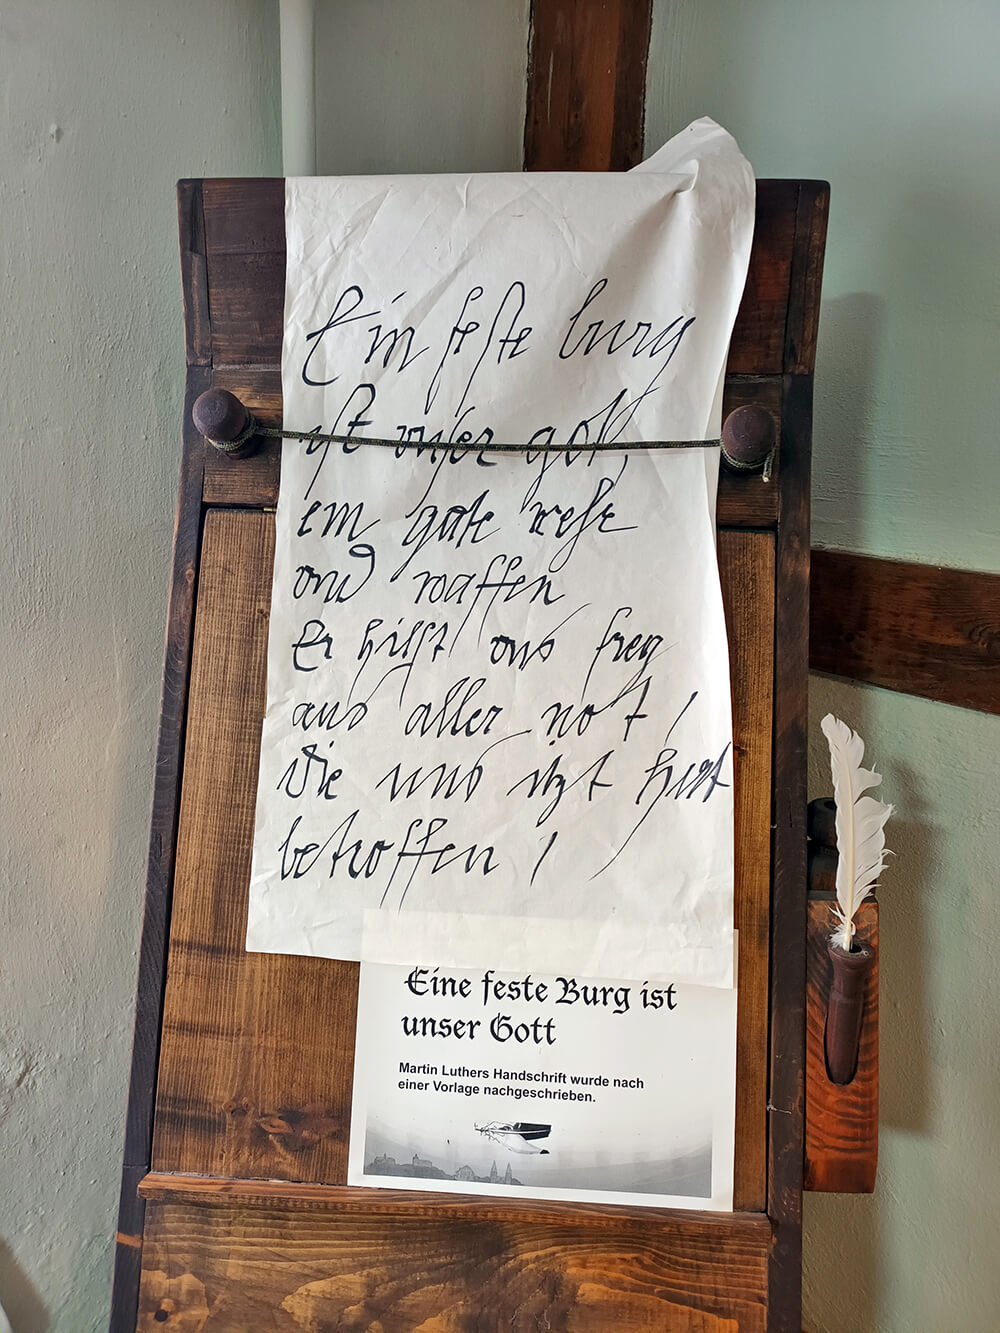 Ein feste burg
ist vnser got,
ein gute wehr
vnd waffen
Er hilfft vns frey
aus aller not /
Die uns itzt hat
betroffen /
Eine feste Burg ist
unser Gott
Martin Luthers Handschrift wurde nach
einer Vorlage nachgeschrieben.